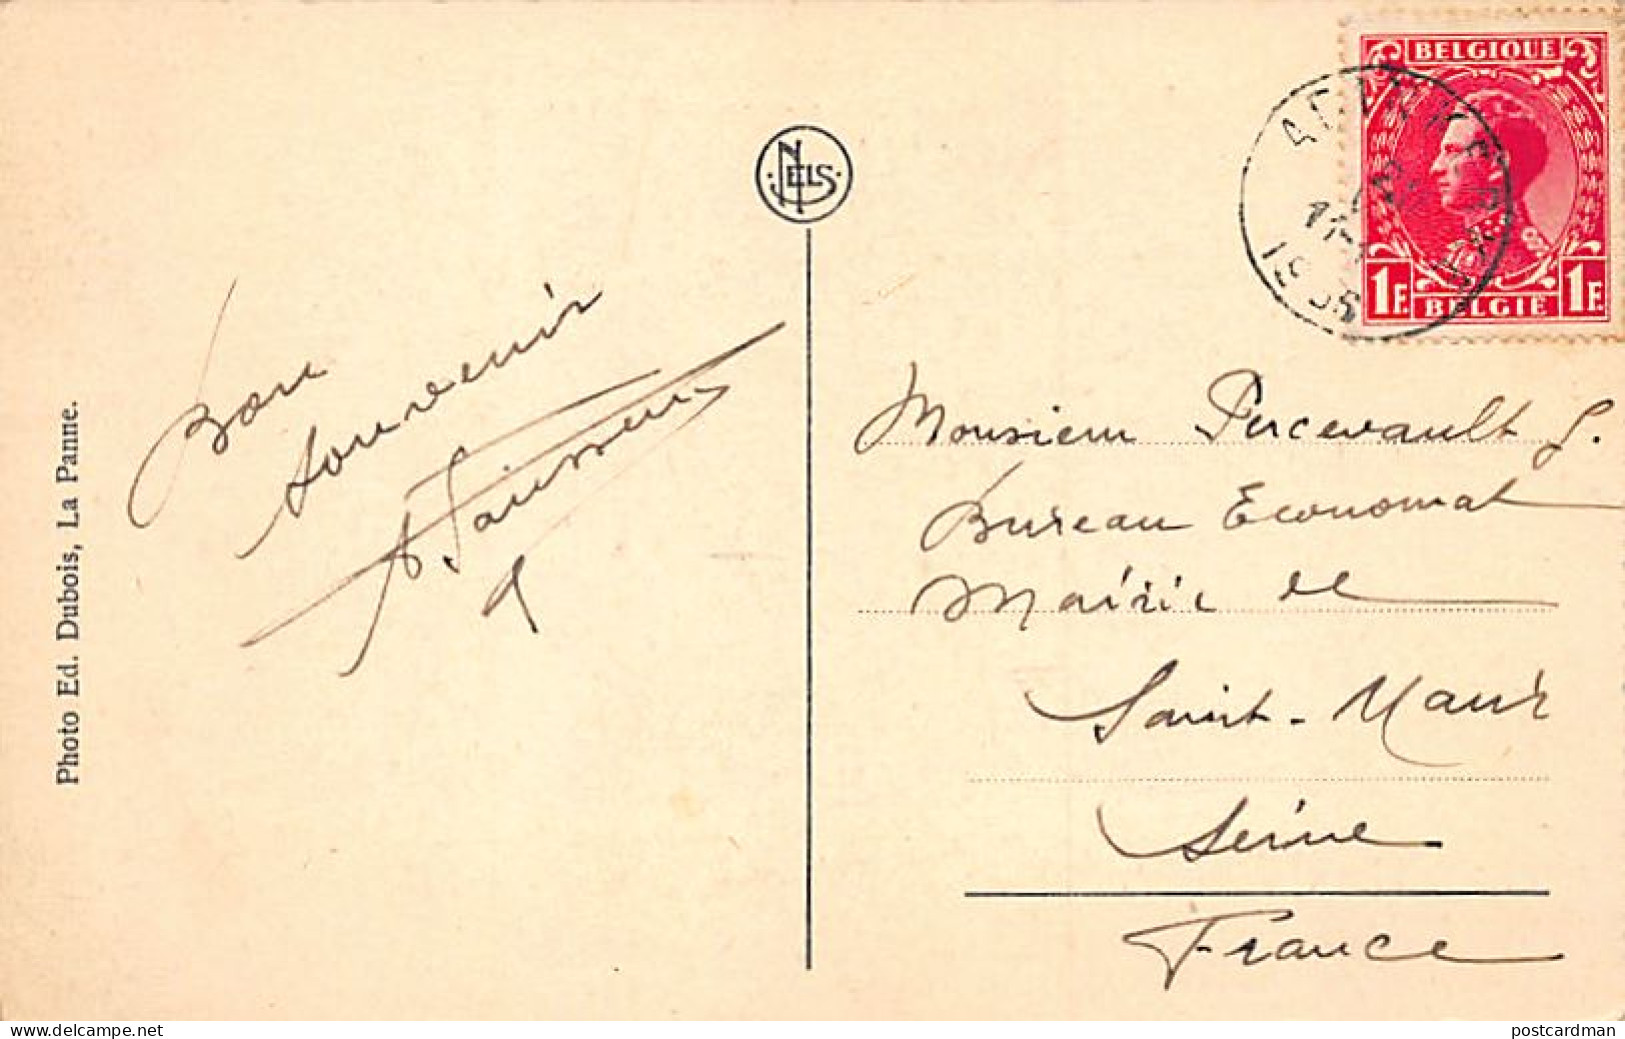 Photo Ed. Dubois, La Panne.
NELS
Bon
souvenir
BELGIQUE
1F. BELGIE 1F.
Monsieur Percevault S.
Bureau Economat
Mairie de
Saint-Maur
Seine
France
delcampe.net
postcardman